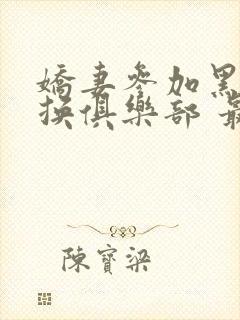 嬌妻參加黑
換俱樂部 最
陳寶梁